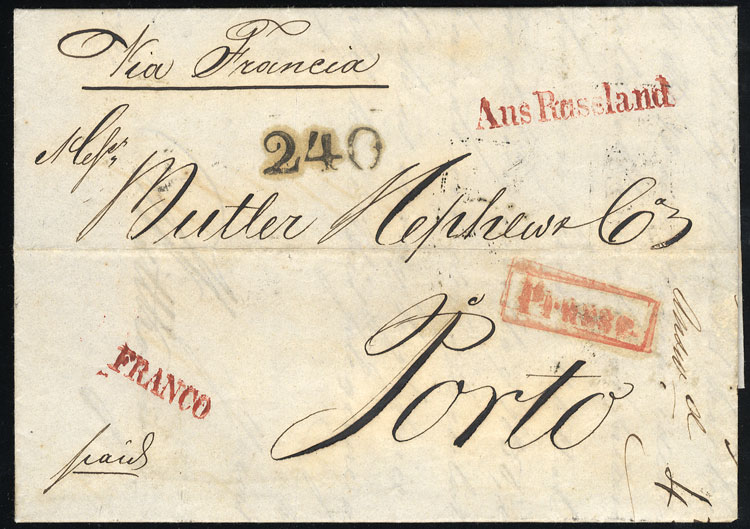 Via Francia
Aus Russland
240
Messrs
Butler Nephew & Co
Porto
FRANCO
paid
4